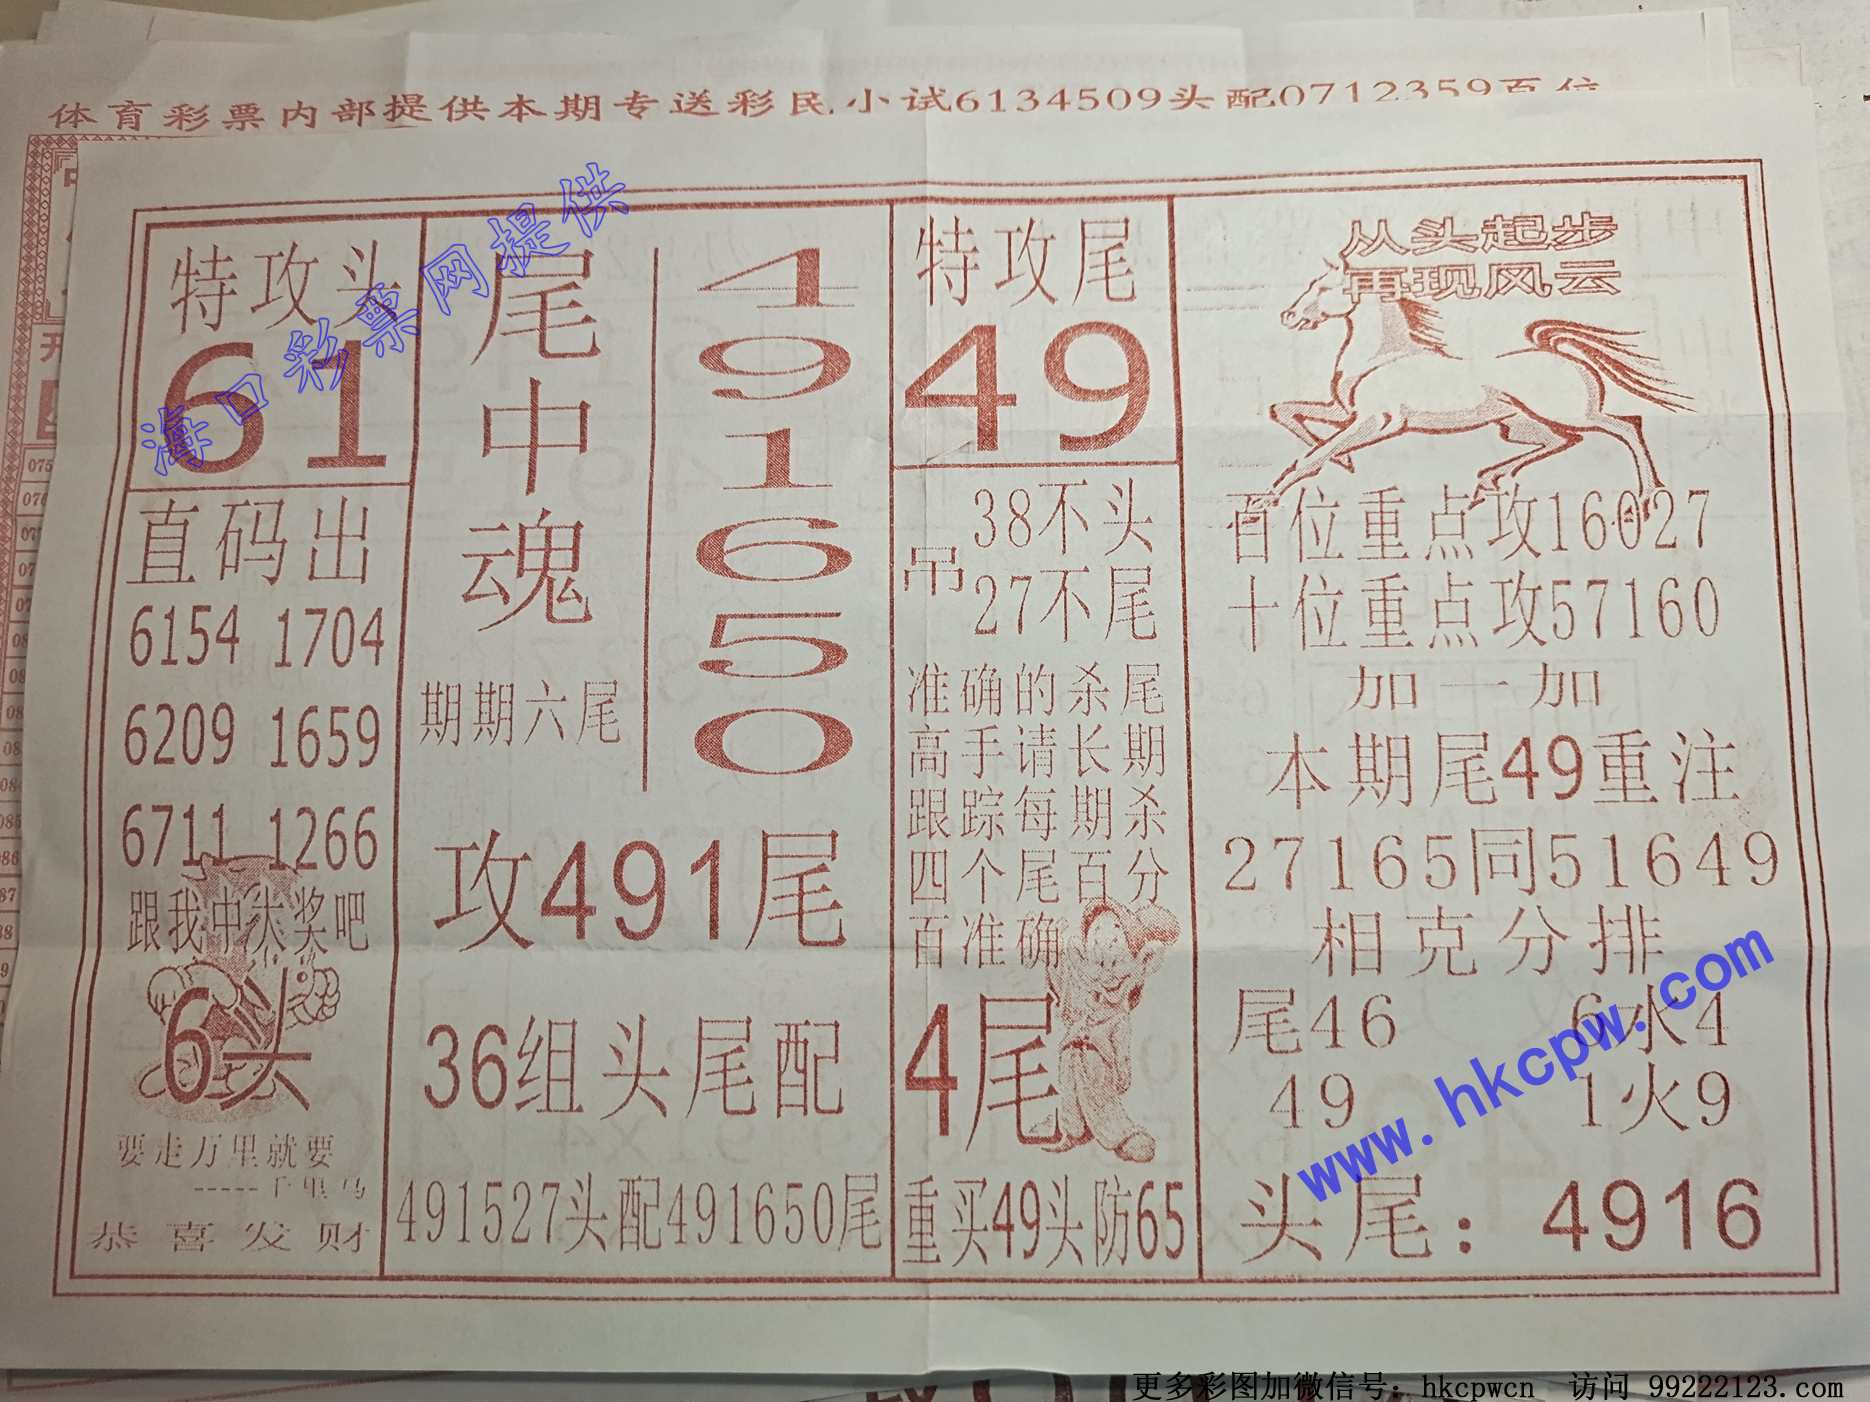 体育彩票内部提供本期专送彩民.小试6134509头配0712359百位
海口彩票网提供
特攻头
61
直码出
6154 1704
6209 1659
6711 1266
跟我中大奖吧
6头
要走万里就要
-----千里马
恭喜发财
尾中魂
期期六尾
4
9
1
6
5
0
攻491尾
36组头尾配
491527头配491650尾
特攻尾
49
吊
38不头
27不尾
准确的杀尾
高手请长期
跟踪每期杀
四个尾百分
百准确
4尾
重买49头防65
从头起步
再现风云
百位重点攻16027
十位重点攻57160
加一加
本期尾49重注
27165同51649
相克分排
尾46 6水4
49 1火9
头尾：4916
www.hkcpw.com
更多彩图加微信号：hkcpwcn 访问 99222123.com